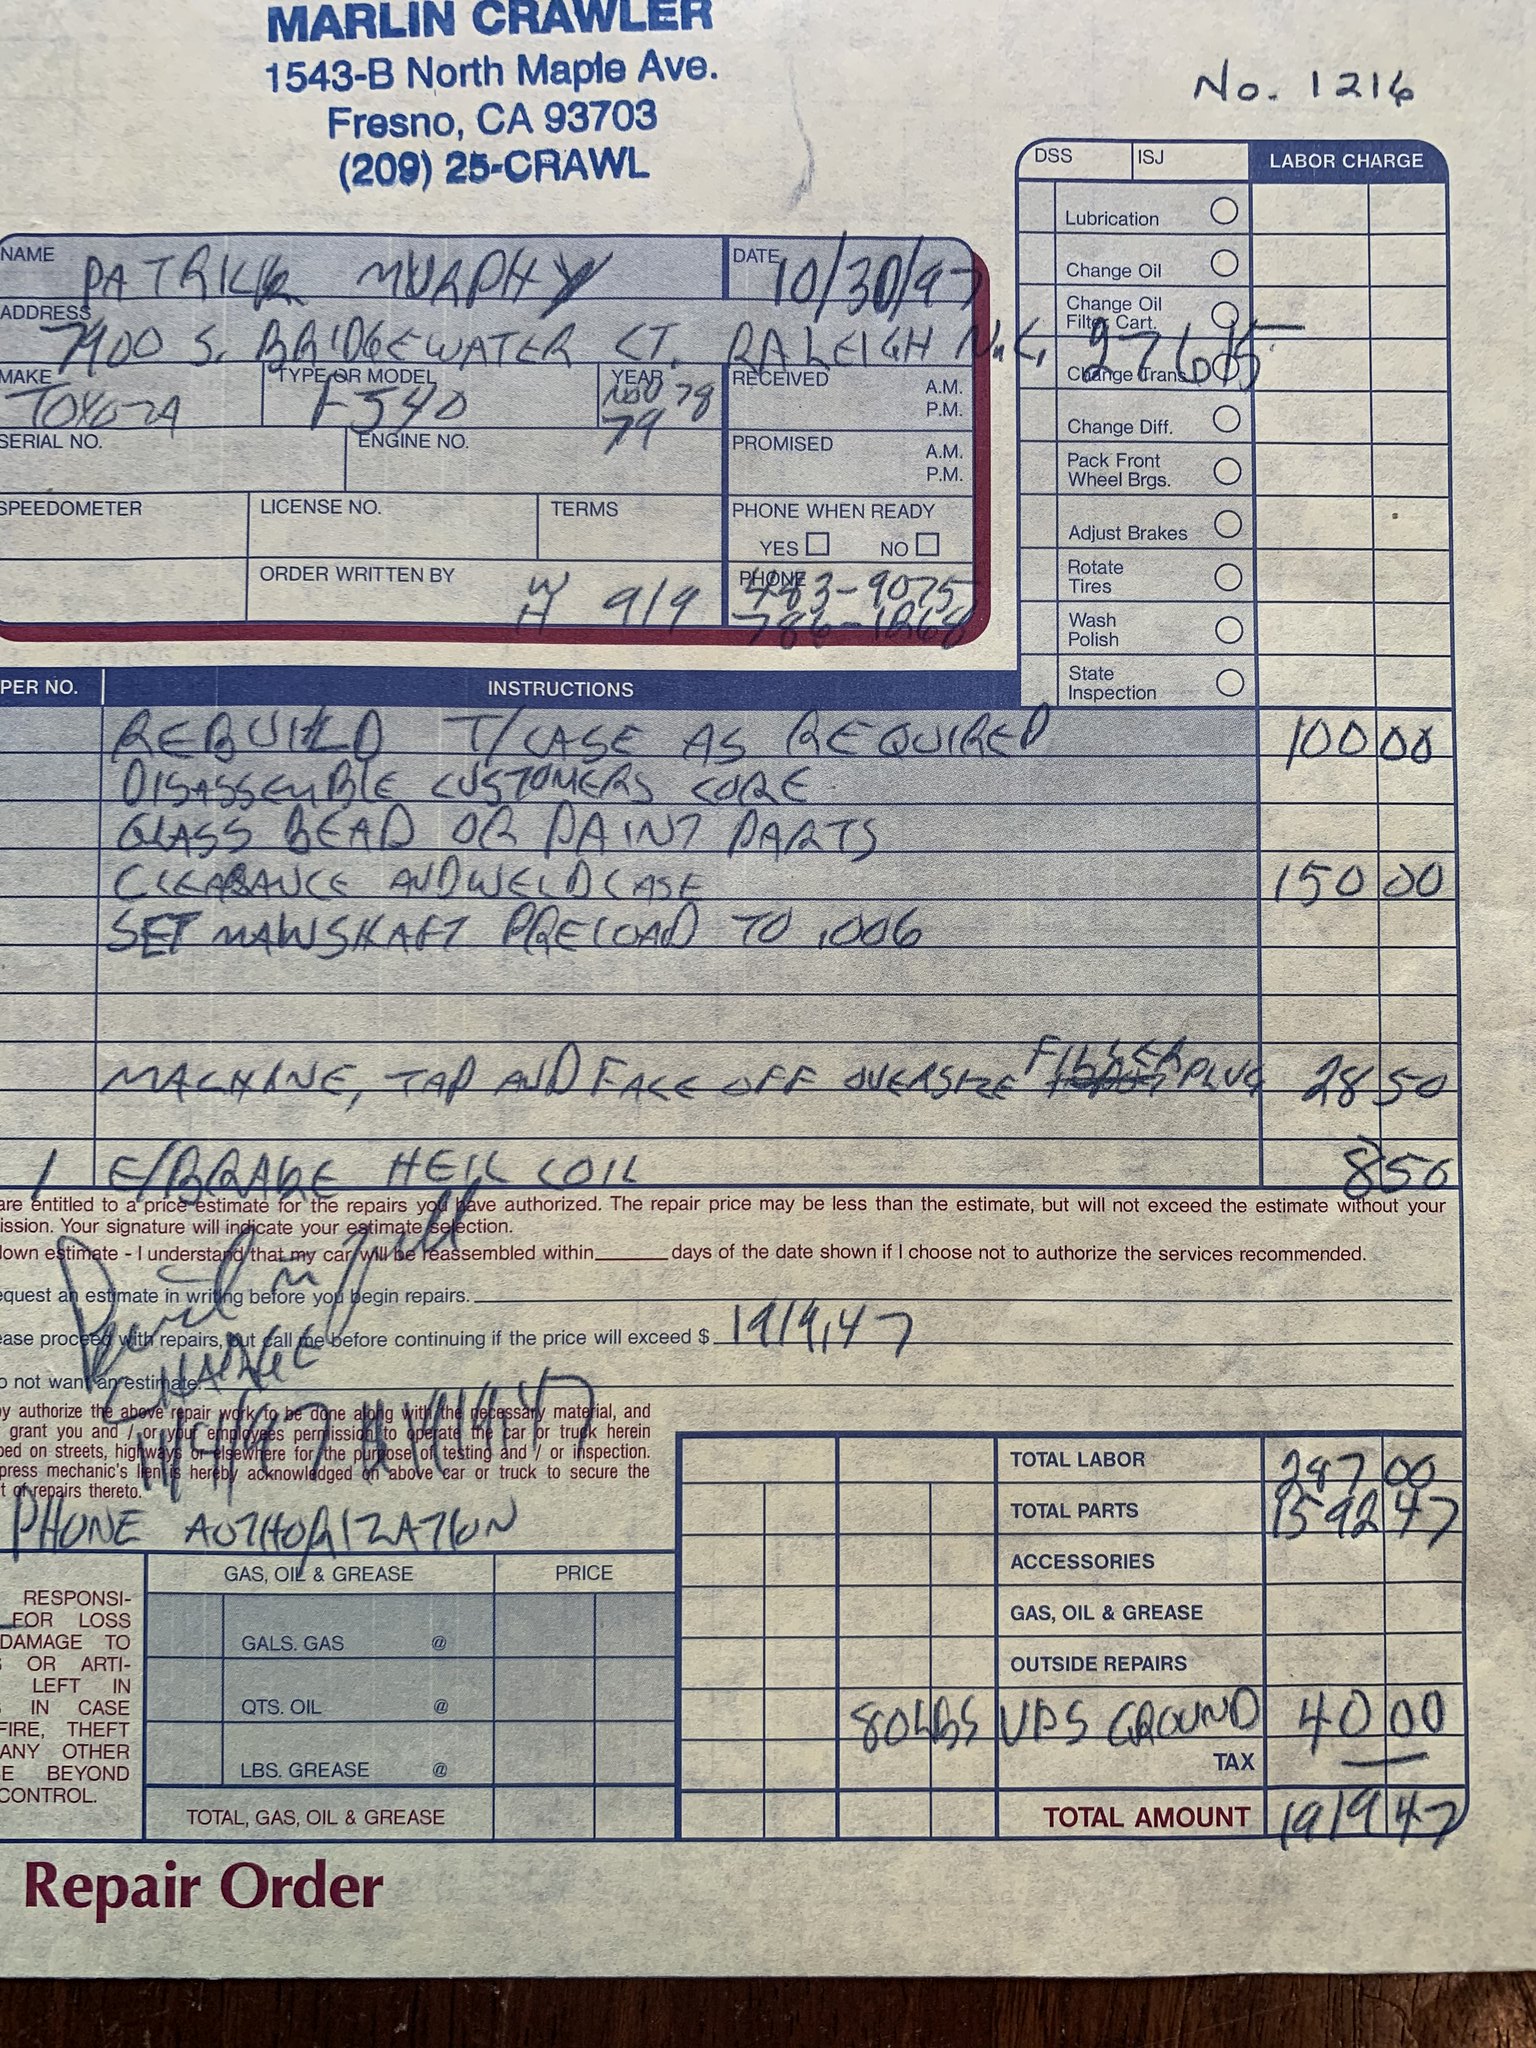 MARLIN CRAWLER
1543-B North Maple Ave.
Fresno, CA 93703
(209) 25-CRAWL
No. 1216
DSS ISJ LABOR CHARGE
Lubrication
Change Oil
Change Oil
Filter Cart.
Change Trans.
Change Diff.
Pack Front
Wheel Brgs.
Adjust Brakes
Rotate
Tires
Wash
Polish
State
Inspection
NAME PATRICK MURPHY DATE 10/30/97
ADDRESS 7900 S. BRIDGEWATER CT. RALEIGH N.C. 27615
MAKE TOYOTA TYPE OR MODEL FJ40 YEAR NOV 78
79
RECEIVED A.M.
P.M.
SERIAL NO. ENGINE NO. PROMISED A.M.
P.M.
SPEEDOMETER LICENSE NO. TERMS PHONE WHEN READY
YES NO
ORDER WRITTEN BY 919 PHONE 483-9075
W
H
PER NO. INSTRUCTIONS
REBUILD T/CASE AS REQUIRED 100 00
DISASSEMBLE CUSTOMERS CORE
GLASS BEAD OR PAINT PARTS
CLEARANCE AND WELD CASE 150 00
SET MAINSHAFT PRELOAD TO .006
MACHINE, TAP AND FACE OFF OVERSIZE FILLER PLUG 28 50
1 E/BRAKE HELI COIL 8 50
are entitled to a price estimate for the repairs you have authorized. The repair price may be less than the estimate, but will not exceed the estimate without your
ission. Your signature will indicate your estimate selection.
down estimate - I understand that my car will be reassembled within days of the date shown if I choose not to authorize the services recommended.
equest an estimate in writing before you begin repairs.
ease proceed with repairs, but call me before continuing if the price will exceed $ 1919.47
o not want an estimate.
CHARGE
by authorize the above repair work to be done along with the necessary material, and
grant you and / or your employees permission to operate the car or truck herein
bed on streets, highways or elsewhere for the purpose of testing and / or inspection.
press mechanic's lien is hereby acknowledged on above car or truck to secure the
t of repairs thereto.
PHONE AUTHORIZATION
RESPONSI-
FOR LOSS
DAMAGE TO
OR ARTI-
LEFT IN
IN CASE
FIRE, THEFT
ANY OTHER
E BEYOND
CONTROL.
GAS, OIL & GREASE PRICE
GALS. GAS @
QTS. OIL @
LBS. GREASE @
TOTAL, GAS, OIL & GREASE
TOTAL LABOR 287 00
TOTAL PARTS 1592 47
ACCESSORIES
GAS, OIL & GREASE
OUTSIDE REPAIRS
80 LBS UPS GROUND 40 00
TAX —
TOTAL AMOUNT 1919 47
Repair Order